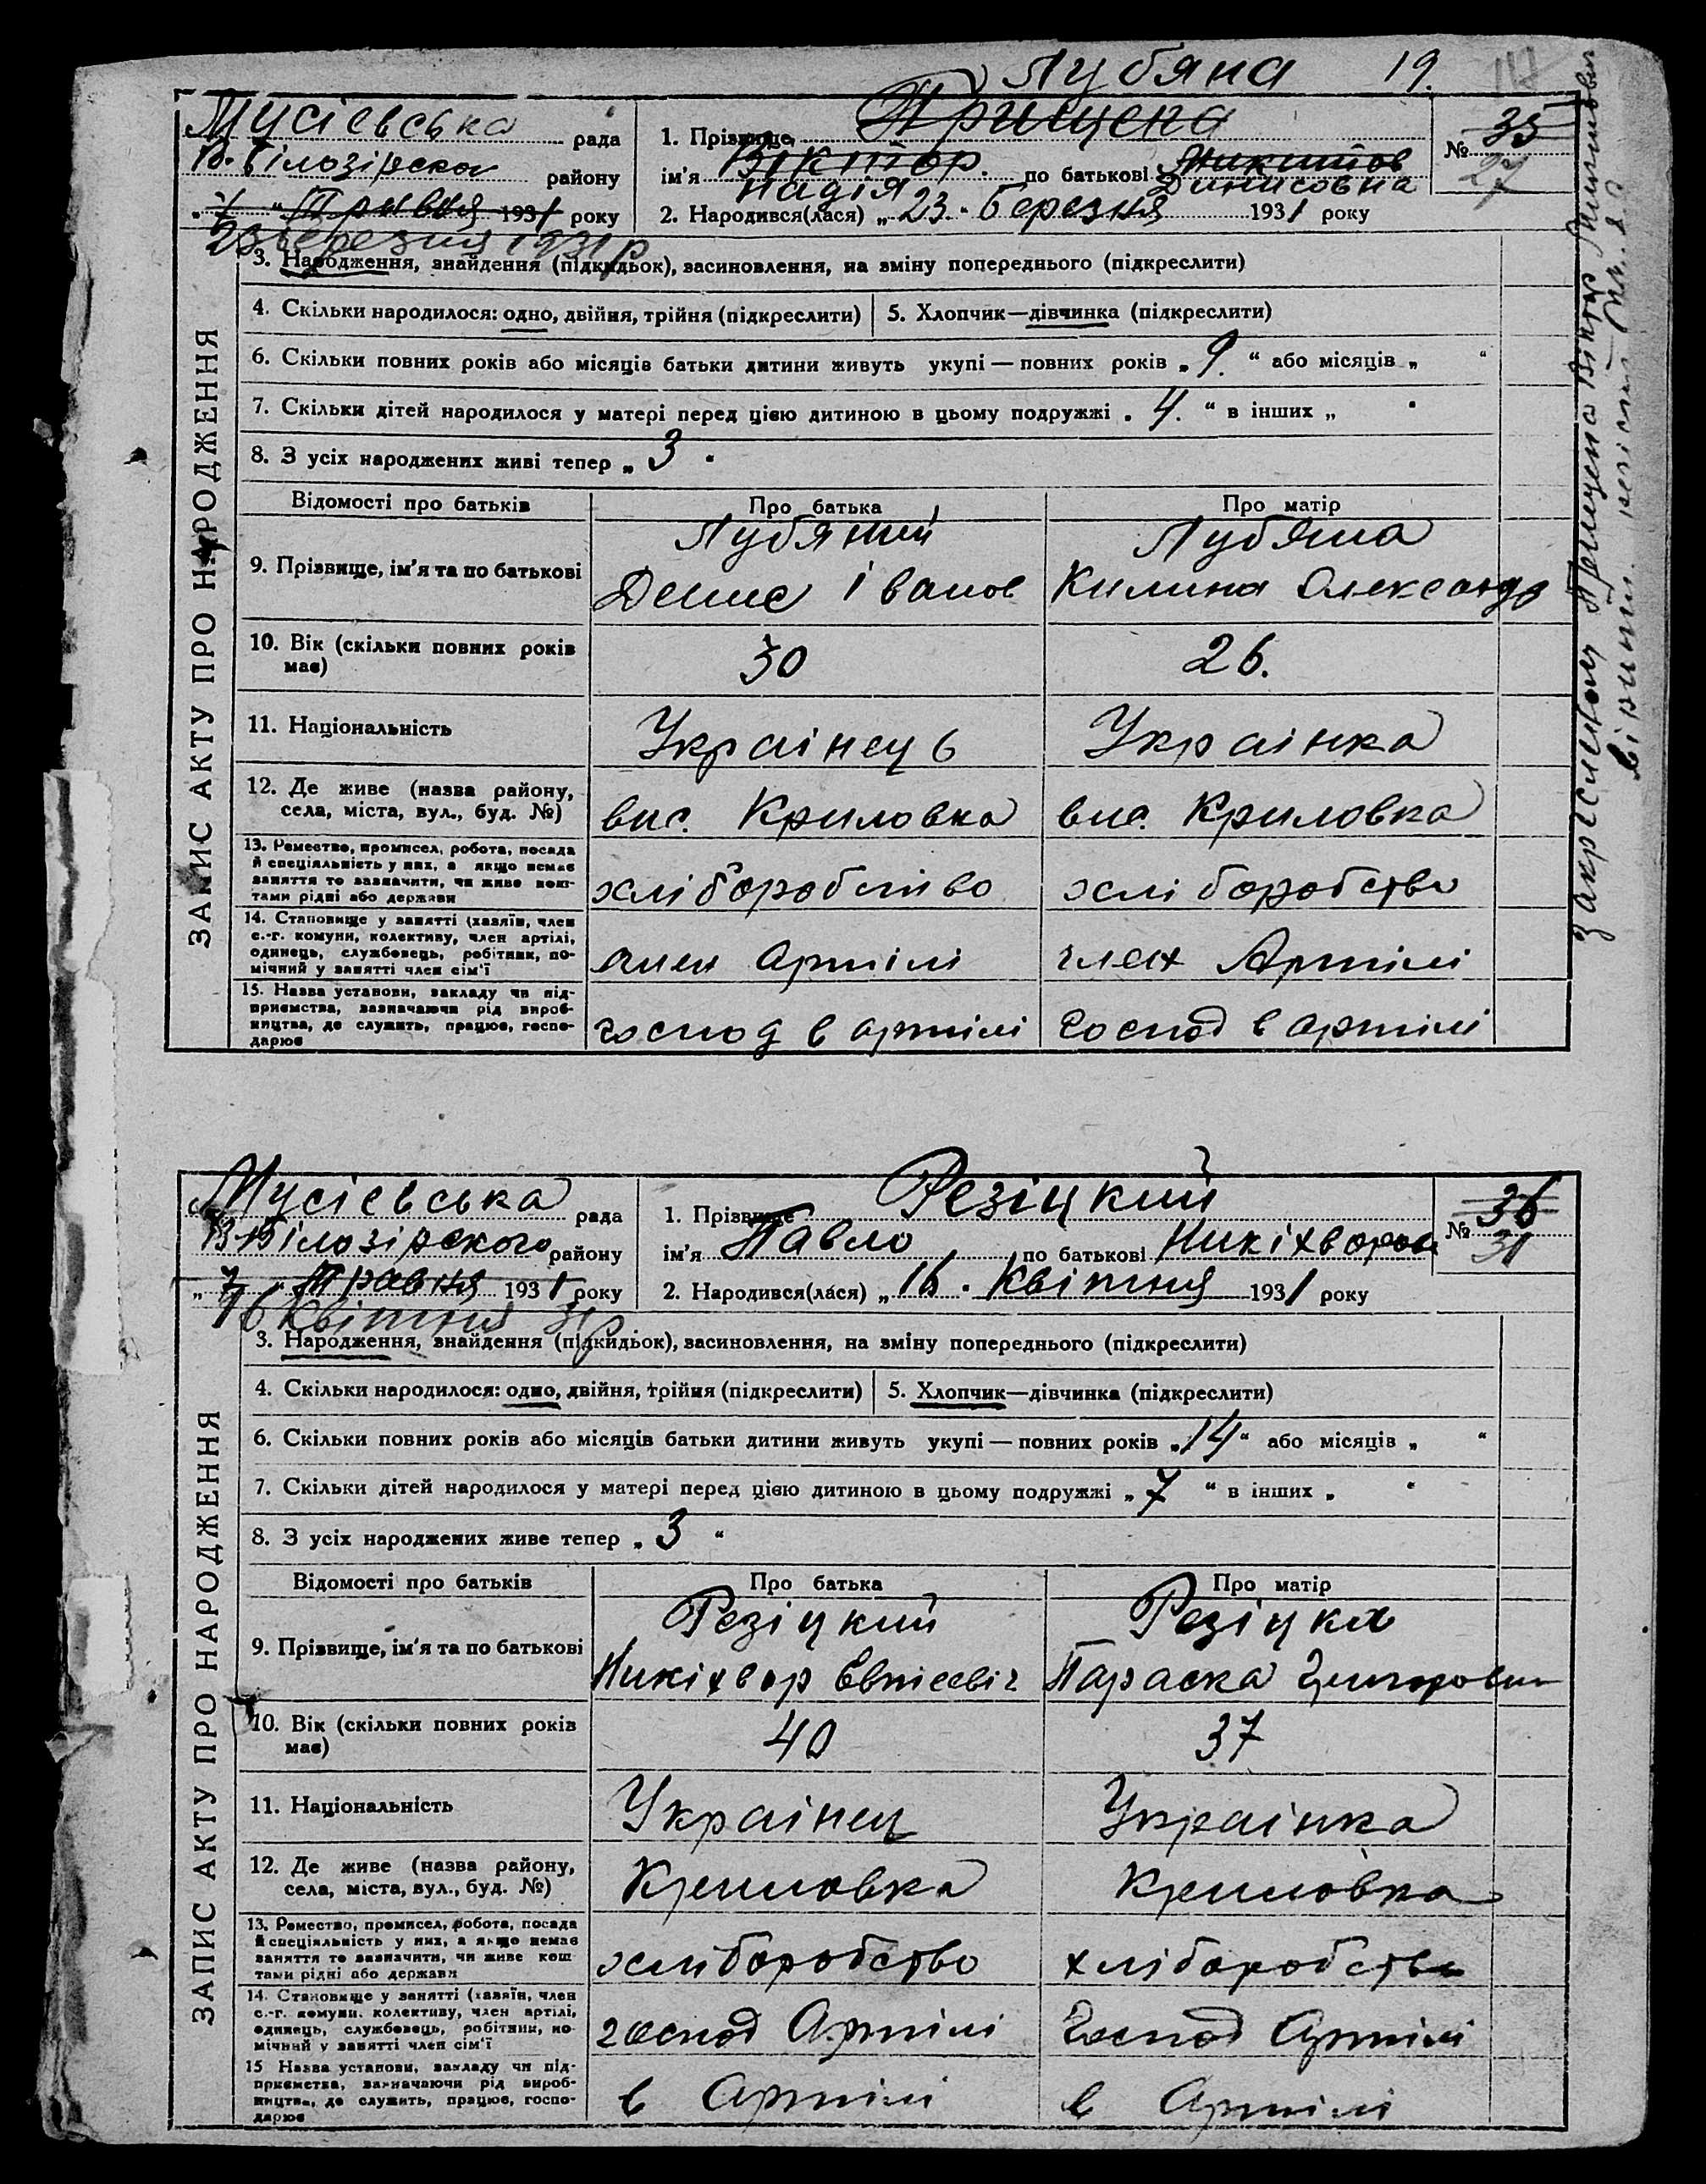 Лубяна 19.
117
Мусієвська рада
В. Білозірска району
„7“ Травня 1931 року
23 березня 1931 р
1. Прізвище Прищепа
ім'я Віктор. по батькові Никитов
Надія Динисовна
2. Народився(лася) „23“ березня 1931 року
№ 35
27
3. Народження, знайдення (підкидьок), васиновлення, на зміну попереднього (підкреслити)
4. Скільки народилося: одно, двійня, трійня (підкреслити)
5. Хлопчик—дівчинка (підкреслити)
6. Скільки повних років або місяців батьки дитини живуть укупі — повних років „9.“ або місяців „ “
7. Скільки дітей народилося у матері перед цією дитиною в цьому подружжі „4.“ в інших „ “
8. З усіх народжених живі тепер „3“
ЗАПИС АКТУ ПРО НАРОДЖЕННЯ
Відомості про батьків Про батька Про матір
9. Прізвище, ім'я та по батькові
Лубяний Лубяна
Денис Іванов Килина Олександр
10. Вік (скільки повних років має) 30 26.
11. Національність Украінець Украінка
12. Де живе (назва району,
села, міста, вул., буд. №) вис. Криловка вис. Криловка
13. Ремество, промисел, робота, посада
й спеціяльність у них, а якщо немає
заняття то зазначити, чи живе кош-
тами рідні або держави
хліборобство хліборобство
14. Становище у занятті (хазяїн, член
с.-г. комуни, колективу, член артілі,
одинець, службовець, робітник, по-
мічний у занятті член сім'ї
член Артілі член Артілі
15. Назва установи, закладу чи під-
приємства, зазначаючи рід вироб-
ництва, де служить, працює, госпо-
дарює
господ в артілі господ в артілі
Закресленому Прищепа Віктор
вірити.
Мусієвська рада
В-Білозірского району
„7“ Травня 1931 року
16 Квітня 31 р
1. Прізвище Резіцкий
ім'я Павло, по батькові Никіхворов
2. Народився(лася) „16“ Квітня 1931 року
№ 36
31
3. Народження, знайдення (підкидьок), васиновлення, на зміну попереднього (підкреслити)
4. Скільки народилося: одно, двійня, трійня (підкреслити)
5. Хлопчик—дівчинка (підкреслити)
6. Скільки повних років або місяців батьки дитини живуть укупі — повних років „14“ або місяців „ “
7. Скільки дітей народилося у матері перед цією дитиною в цьому подружжі „7“ в інших „ “
8. З усіх народжених живе тепер „3“
ЗАПИС АКТУ ПРО НАРОДЖЕННЯ
Відомості про батьків Про батька Про матір
9. Прізвище, ім'я та по батькові
Резіцкий Резіцка
Никіхвор Параска
10. Вік (скільки повних років має) 40 37
11. Національність Украінец Украінка
12. Де живе (назва району,
села, міста, вул., буд. №) Криловка Криловка
13. Ремество, промисел, робота, посада
й спеціяльність у них, а якщо немає
заняття то зазначити, чи живе кош-
тами рідні або держави
хліборобство хліборобство
14. Становище у занятті (хазяїн, член
с.-г. комуни, колективу, член артілі,
одинець, службовець, робітник, по-
мічний у занятті член сім'ї
господ Артілі господ Артілі
15 Назва установи, закладу чи під-
приємства, зазначаючи рід вироб-
ництва, де служить, працює, госпо-
дарює
в Артілі в Артілі